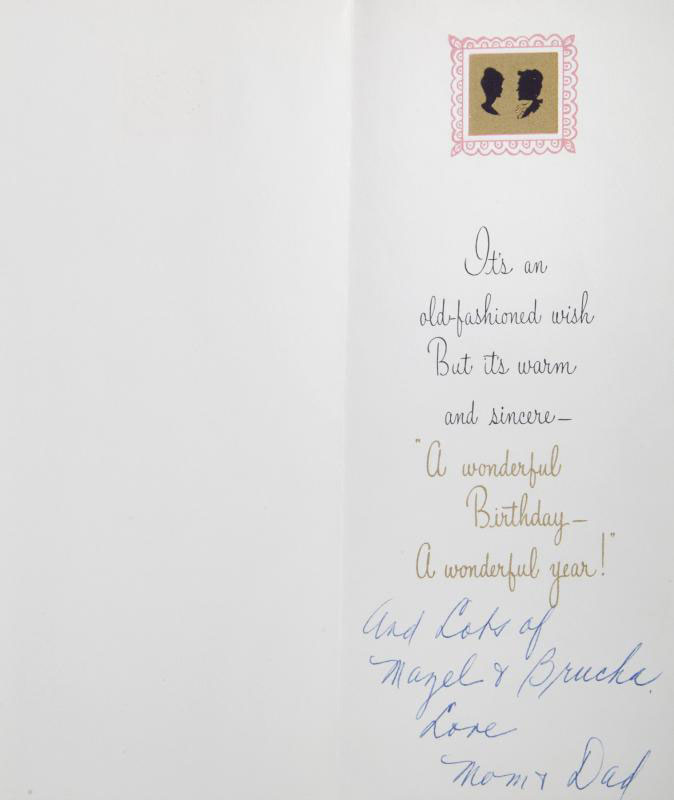 It's an
old-fashioned wish
But it's warm
and sincere—
"A wonderful
Birthday—
A wonderful year!"
And Lots of
Mazel & Brucha.
Love
Mom & Dad